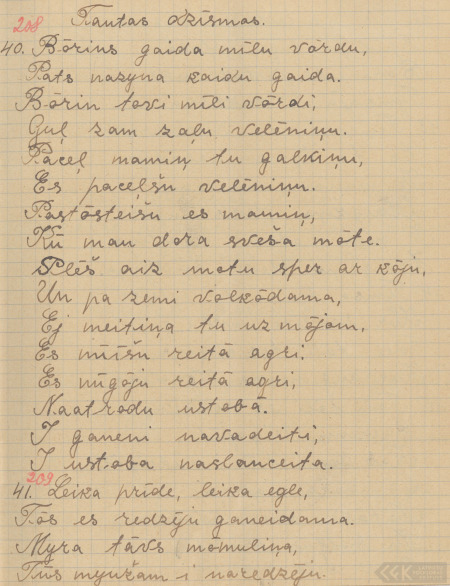 Tautas dzīsmas.
208
40. Bōrins gaida mīlu vōrdu,
Pats nazyna kaidu gaida.
Bōrin tovi mīli vōrdi,
Guļ zam zaļu velēniņu.
Paceļ mamiņ tu galviņu,
Es paceļšu velēniņu.
Pastōsteišu es mamiņ,
Kū man dora sveša mōte.
Plēš aiz motu sper ar kōju,
Un pa zemi volkōdama,
Ej meitiņa tu uz mōjom,
Es īīšu reitā agri.
Es nūgōju reitā agri,
Naatrodu ustobā.
I ganeni navadeiti,
I ustoba naslauceita.
209
41. Leika prīde, leika egle,
Tōs es redzēju ganeidama.
Myra tāvs mōmuliņa,
Tūs myužam i naredzēju.